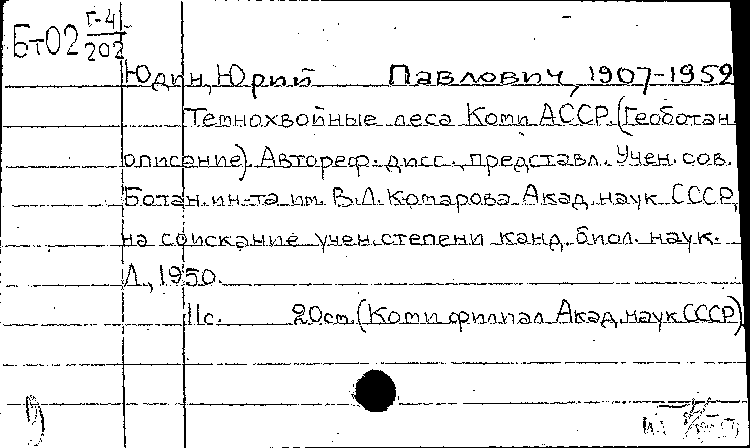 Бт02 Г-4
202
Юдин, Юрий Павлович, 1907-1959
Темнохвойные леса Коми АССР. (Геоботан.
описание). Автореф. дисс., представл. Учен. сов.
Ботан. ин-та им. В.Л. Комарова Акад. наук СССР,
на соискание учен. степени канд. биол. наук.
Л., 1950.
11с. 20см. (Коми филиал Акад. наук СССР)